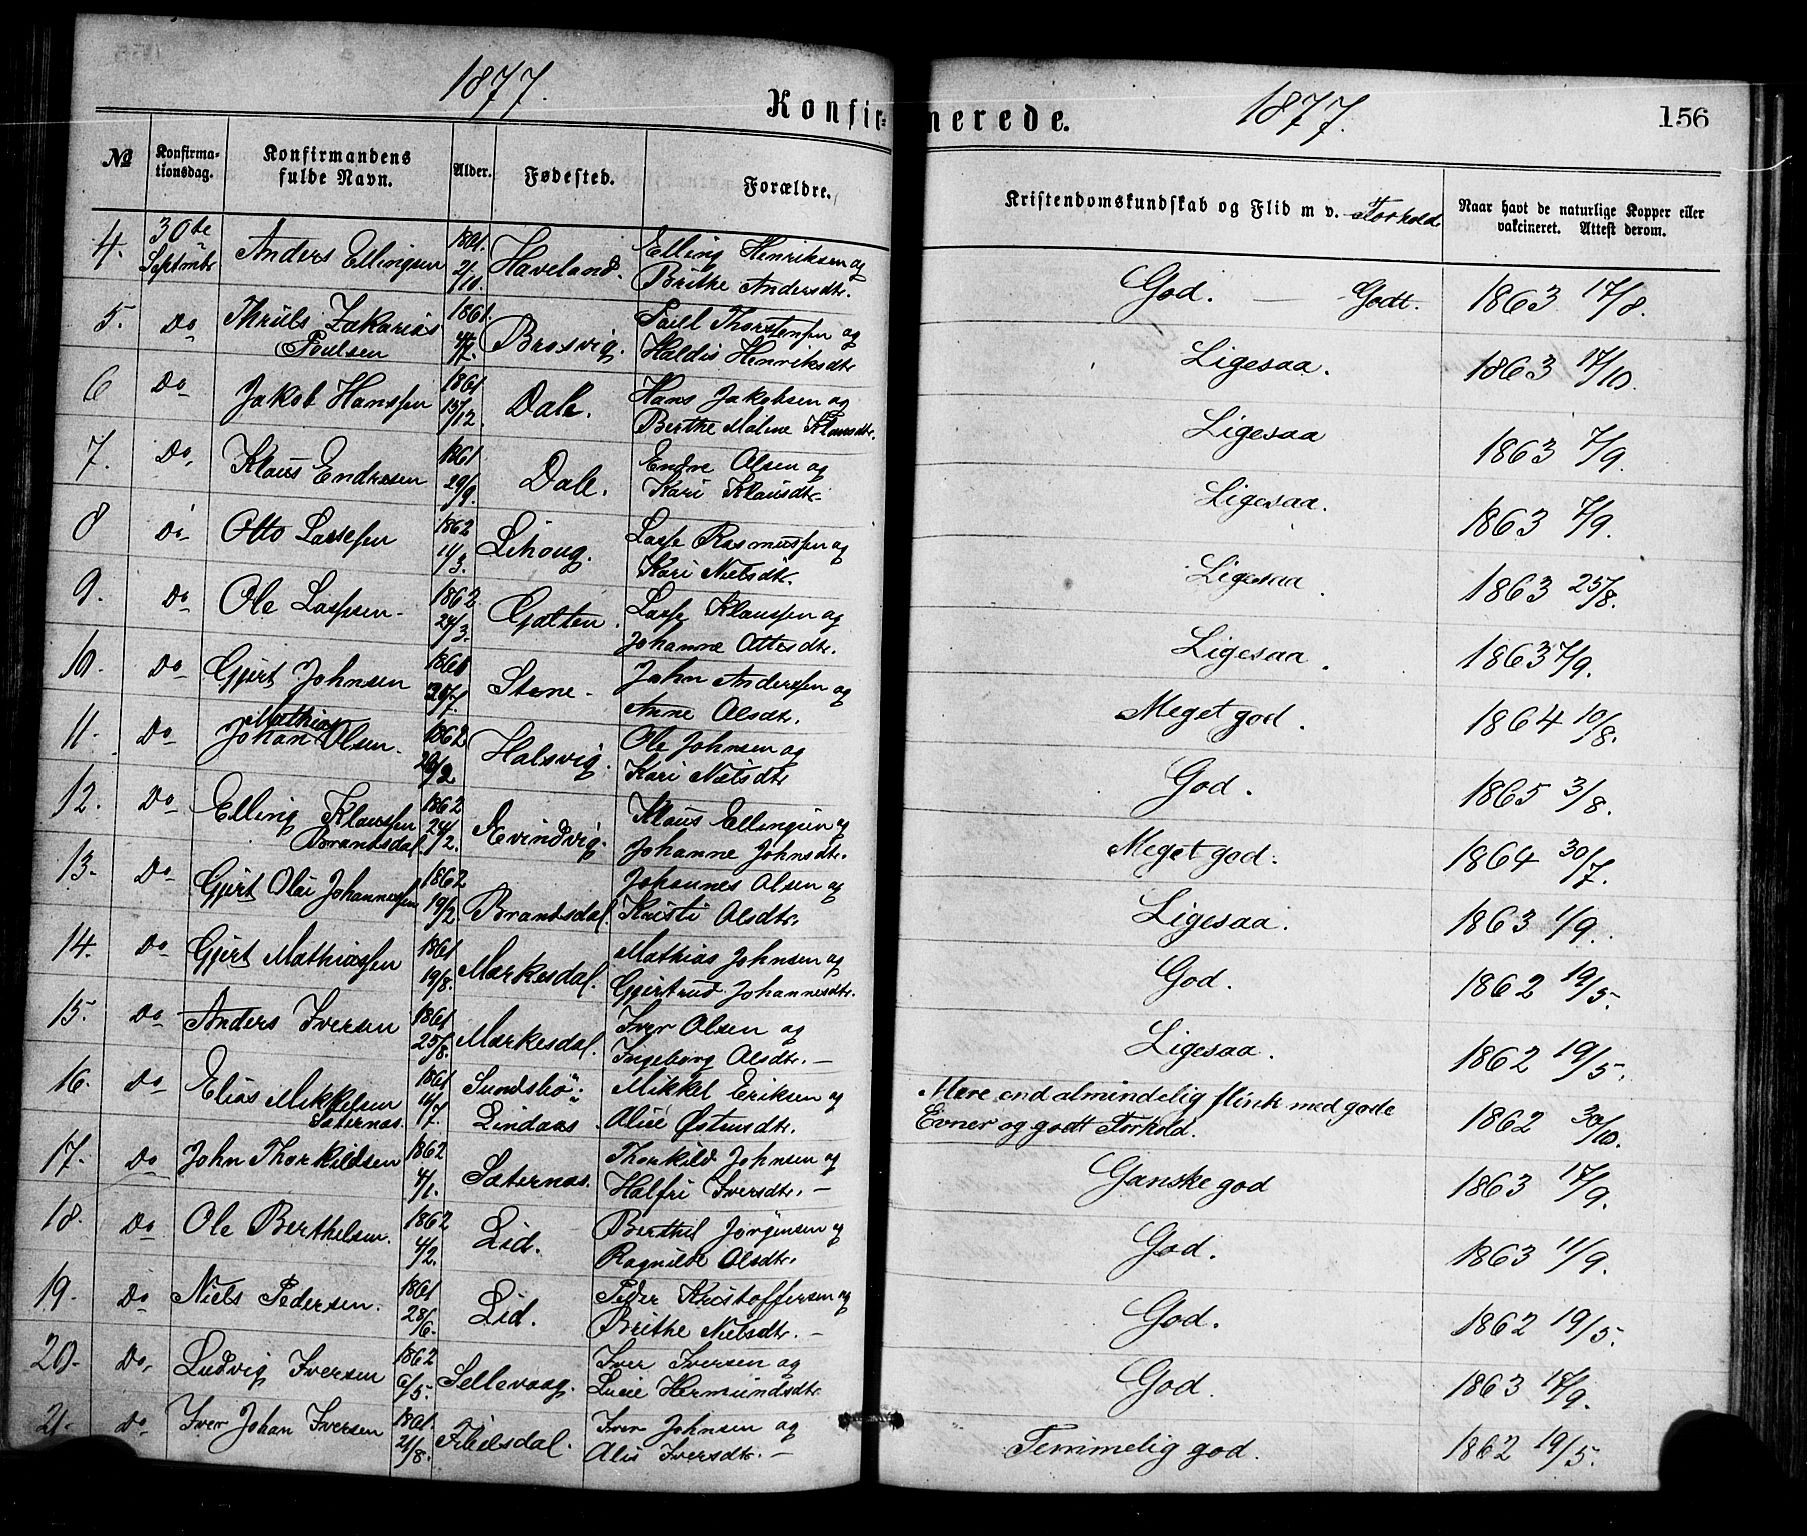 1877.
Konfirmerede.
1877.
156
№
Konfirma-
tionsdag.
Konfirmandens
fulde Navn.
Alder.
Fødested.
Forældre.
Kristendomskundskab og Flid m v. Forhold
Naar havt de naturlige Kopper eller
vakcineret. Attest derom.
4. 30te Septmbr Anders Ellingsen 1861 2/10. Haveland. Elling Henriksen og
Brithe Andersdtr. God. — Godt. 1863 17/8.
5. Do Thruls Zakarias 1861 4/7. Brosvig. Poul Thorstensen og
Poulsen Haldis Henriksdtr Ligesaa. 1863 17/10.
6 Do Jakob Hanssen 1861 15/12. Dale. Hans Jakobsen og
Berthe Malene Klausdtr. Ligesaa 1863 7/9.
7. Do, Klaus Endresen 1861 29/9. Dale. Endre Olsen og
Kari Klausdtr. Ligesaa. 1863 7/9.
8 Do Otto Lassesen 1862 11/3. Lihoug. Lasse Rasmussen og
Kari Nielsdtr. Ligesaa. 1863 25/8.
9. Do Ole Lassesen. 1862 24/3. Galten. Lasse Klaussen og
Johanne Ottesdtr. Ligesaa. 1863 7/9.
10. Do Gjert Johnsen 1861 Stene. John Anderssen og
Anne Olsdtr. Meget god. 1864 10/8.
11. Do Johan Mathias Olsen. 1862 20/2 Halsvig. Ole Johnsen og
Kari Nielsdtr God. 1865 3/8.
12. Do Elling Klaussen 1862 24/2. Evindvig. Klaus Ellingsen og
Brandsdal Johanne Johnsdtr. Meget god. 1864 30/7.
13. Do Gjert Olai Johannessen 1862 19/2 Brandsdal. Johannes Olsen og
Kristi Olsdtr. Ligesaa. 1863 1/9.
14. Do Gjert Mathiassen 1861 19/8. Mærkesdal. Mathias Johnsen og
Gjertrud Johannesdtr. God. 1862 19/5.
15. Do Anders Iversen 1861 25/8. Mærkesdal. Iver Olsen og
Ingeborg Olsdtr. — Ligesaa. 1862 19/5.
16. Do Elias Mikkelsen 1861 16/7. Sundsbö Mikkel Eriksen og
Sæternæs. Lindaas. Alice Østensdtr. Mere end almindelig flink med gode
Evner og godt Forhold. 1862 30/10.
17. Do John Thorkildsen 1862 4/1. Sæternæs. Thorkild Johnsen og
Halfri Iversdtr. — Ganske god 1863 17/9.
18. Do Ole Berthelsen. 1862 4/2. Lid. Berthel Jørgensen og
Ragnilde Olsdtr. God. 1863 11/9.
19. Do Niels Pedersen. 1861 28/6. Lid. Peder Kristoffersen og
Brithe Nielsdtr. — God. 1862 19/5.
20. Do, Ludvig Iversen 1862 6/5. Sellevaag. Iver Iversen og
Lucie Hermundsdtr God. 1863 17/9.
21. Do Iver Johan Iversen 1861. 21/8. Fibelsdal. Iver Johnsen og
Alis Iversdtr. — Temmelig god. 1862 19/5.